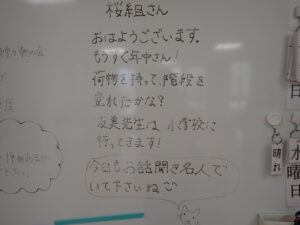 桜組さん
おはようございます。
もうすぐ年中さん!
荷物を持って、階段を
登れたかな?
友美先生は小学校に
行ってきます!
今日もお話聞き名人で
いて下さいね
晴れ
水曜日
日